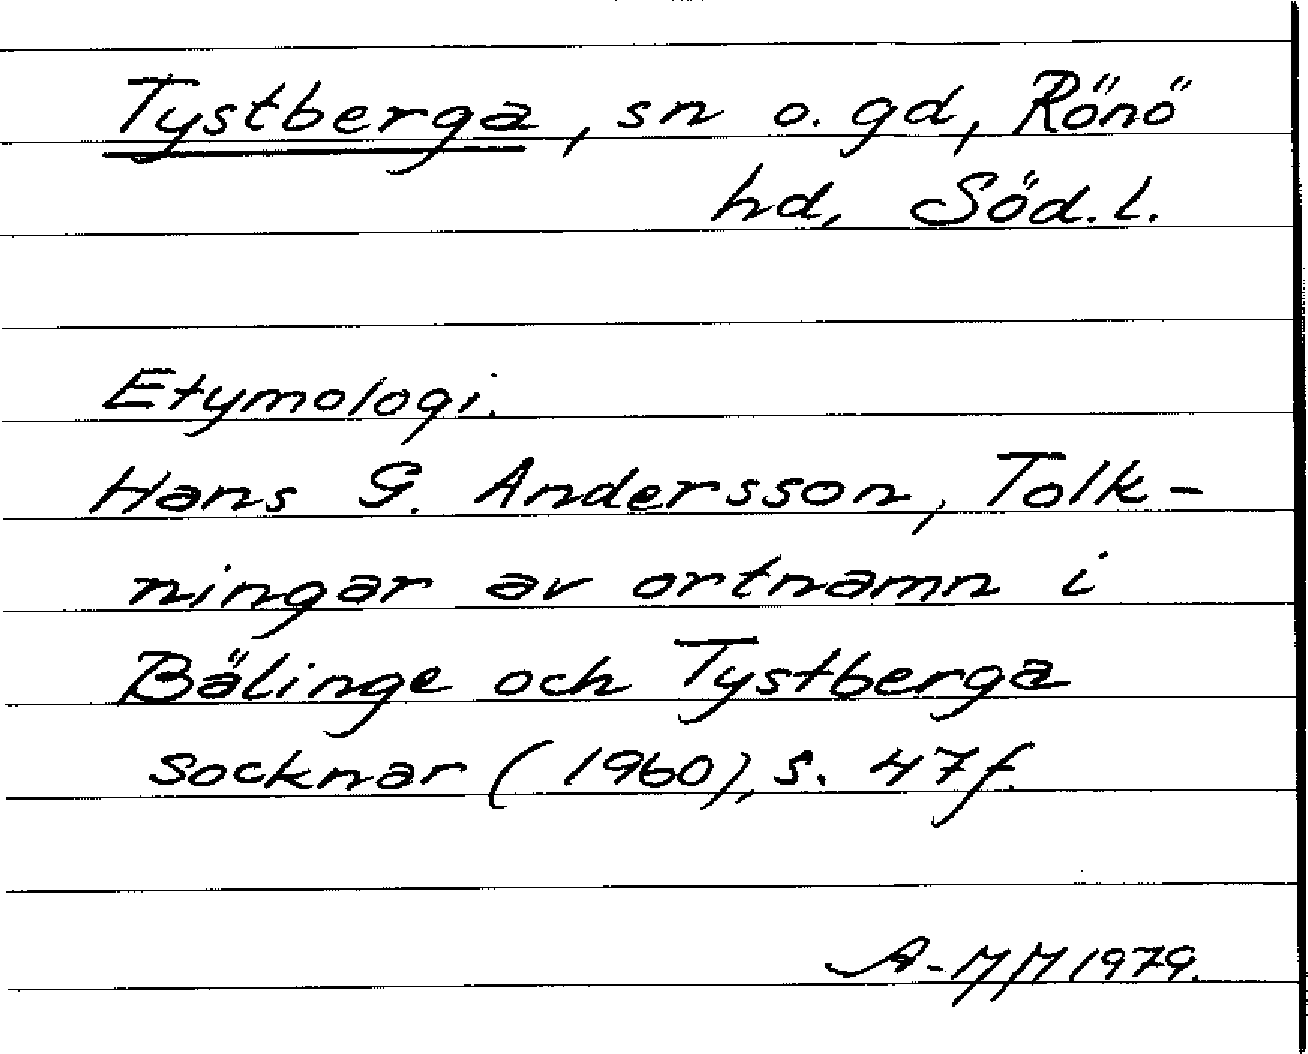 Tystberga, sn o. gd, Rönö
hd, Söd. l.
Etymologi.
Hans G. Andersson, Tolk-
ningar av ortnamn i
Bälinge och Tystberga
socknar (1960), s. 47f.
A-MM 1979.